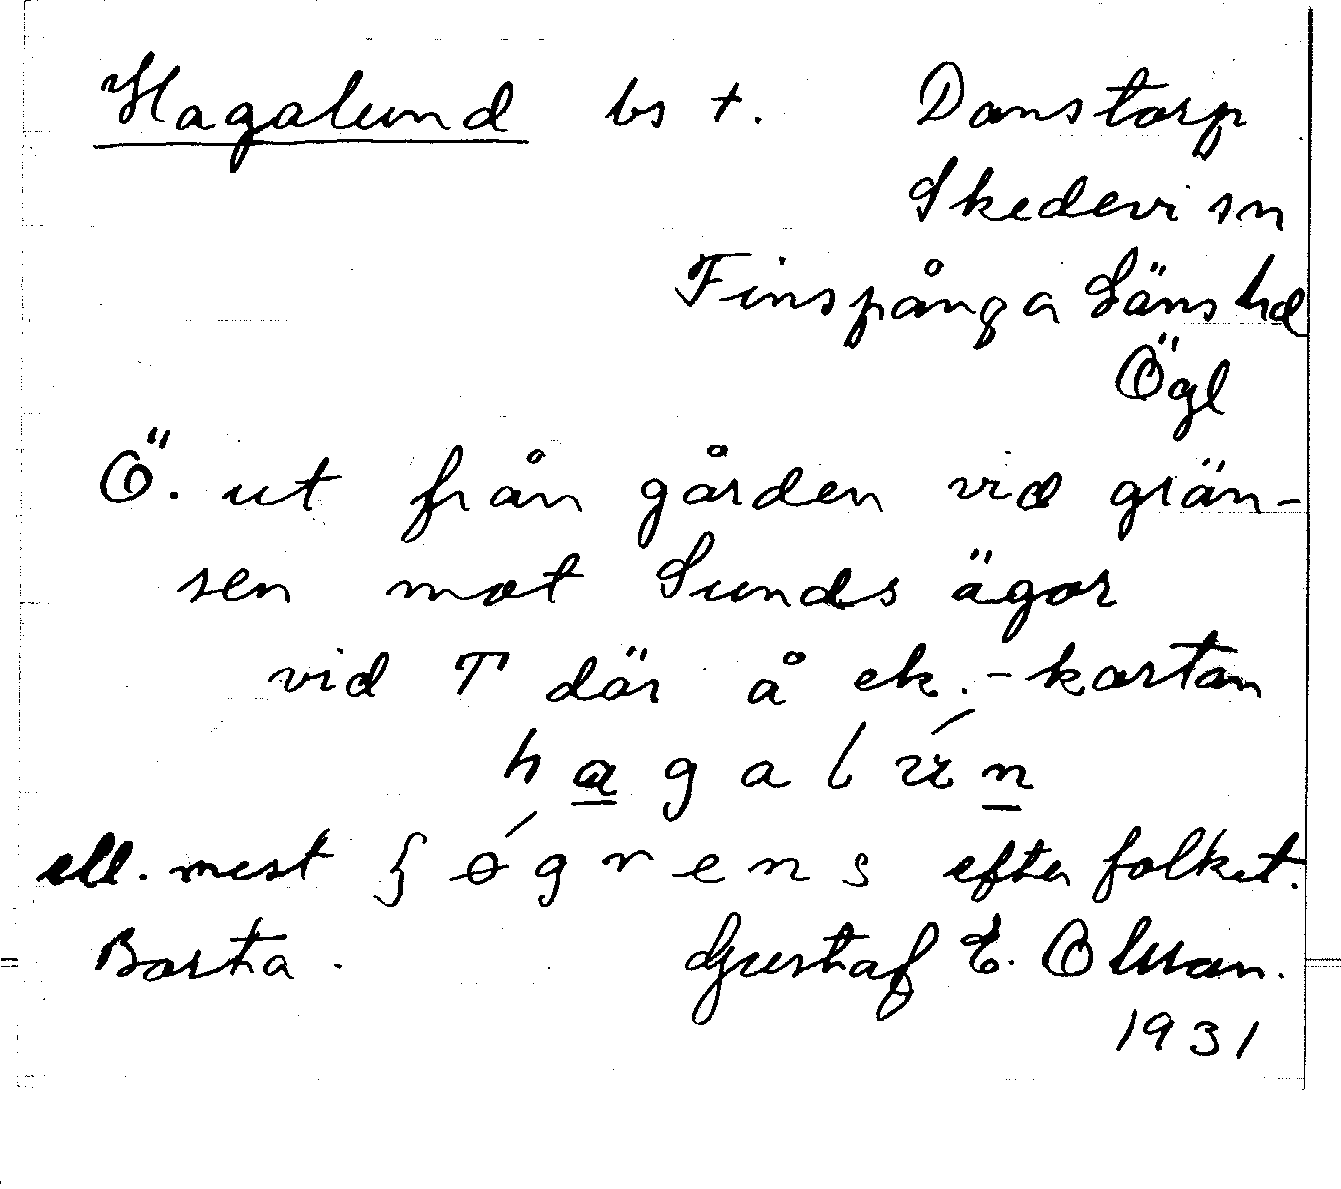 Hagalund bs t. Danstorp
Skedevi sn
Finspånga Läns hd
Ögl
Ö. ut från gården vid grän-
sen mot Sunds ägor
vid T där å ek.-kartan
hagalún
ell. mest ʃøgrens efter folket.
Borta. Gustaf E. Olsson.
1931